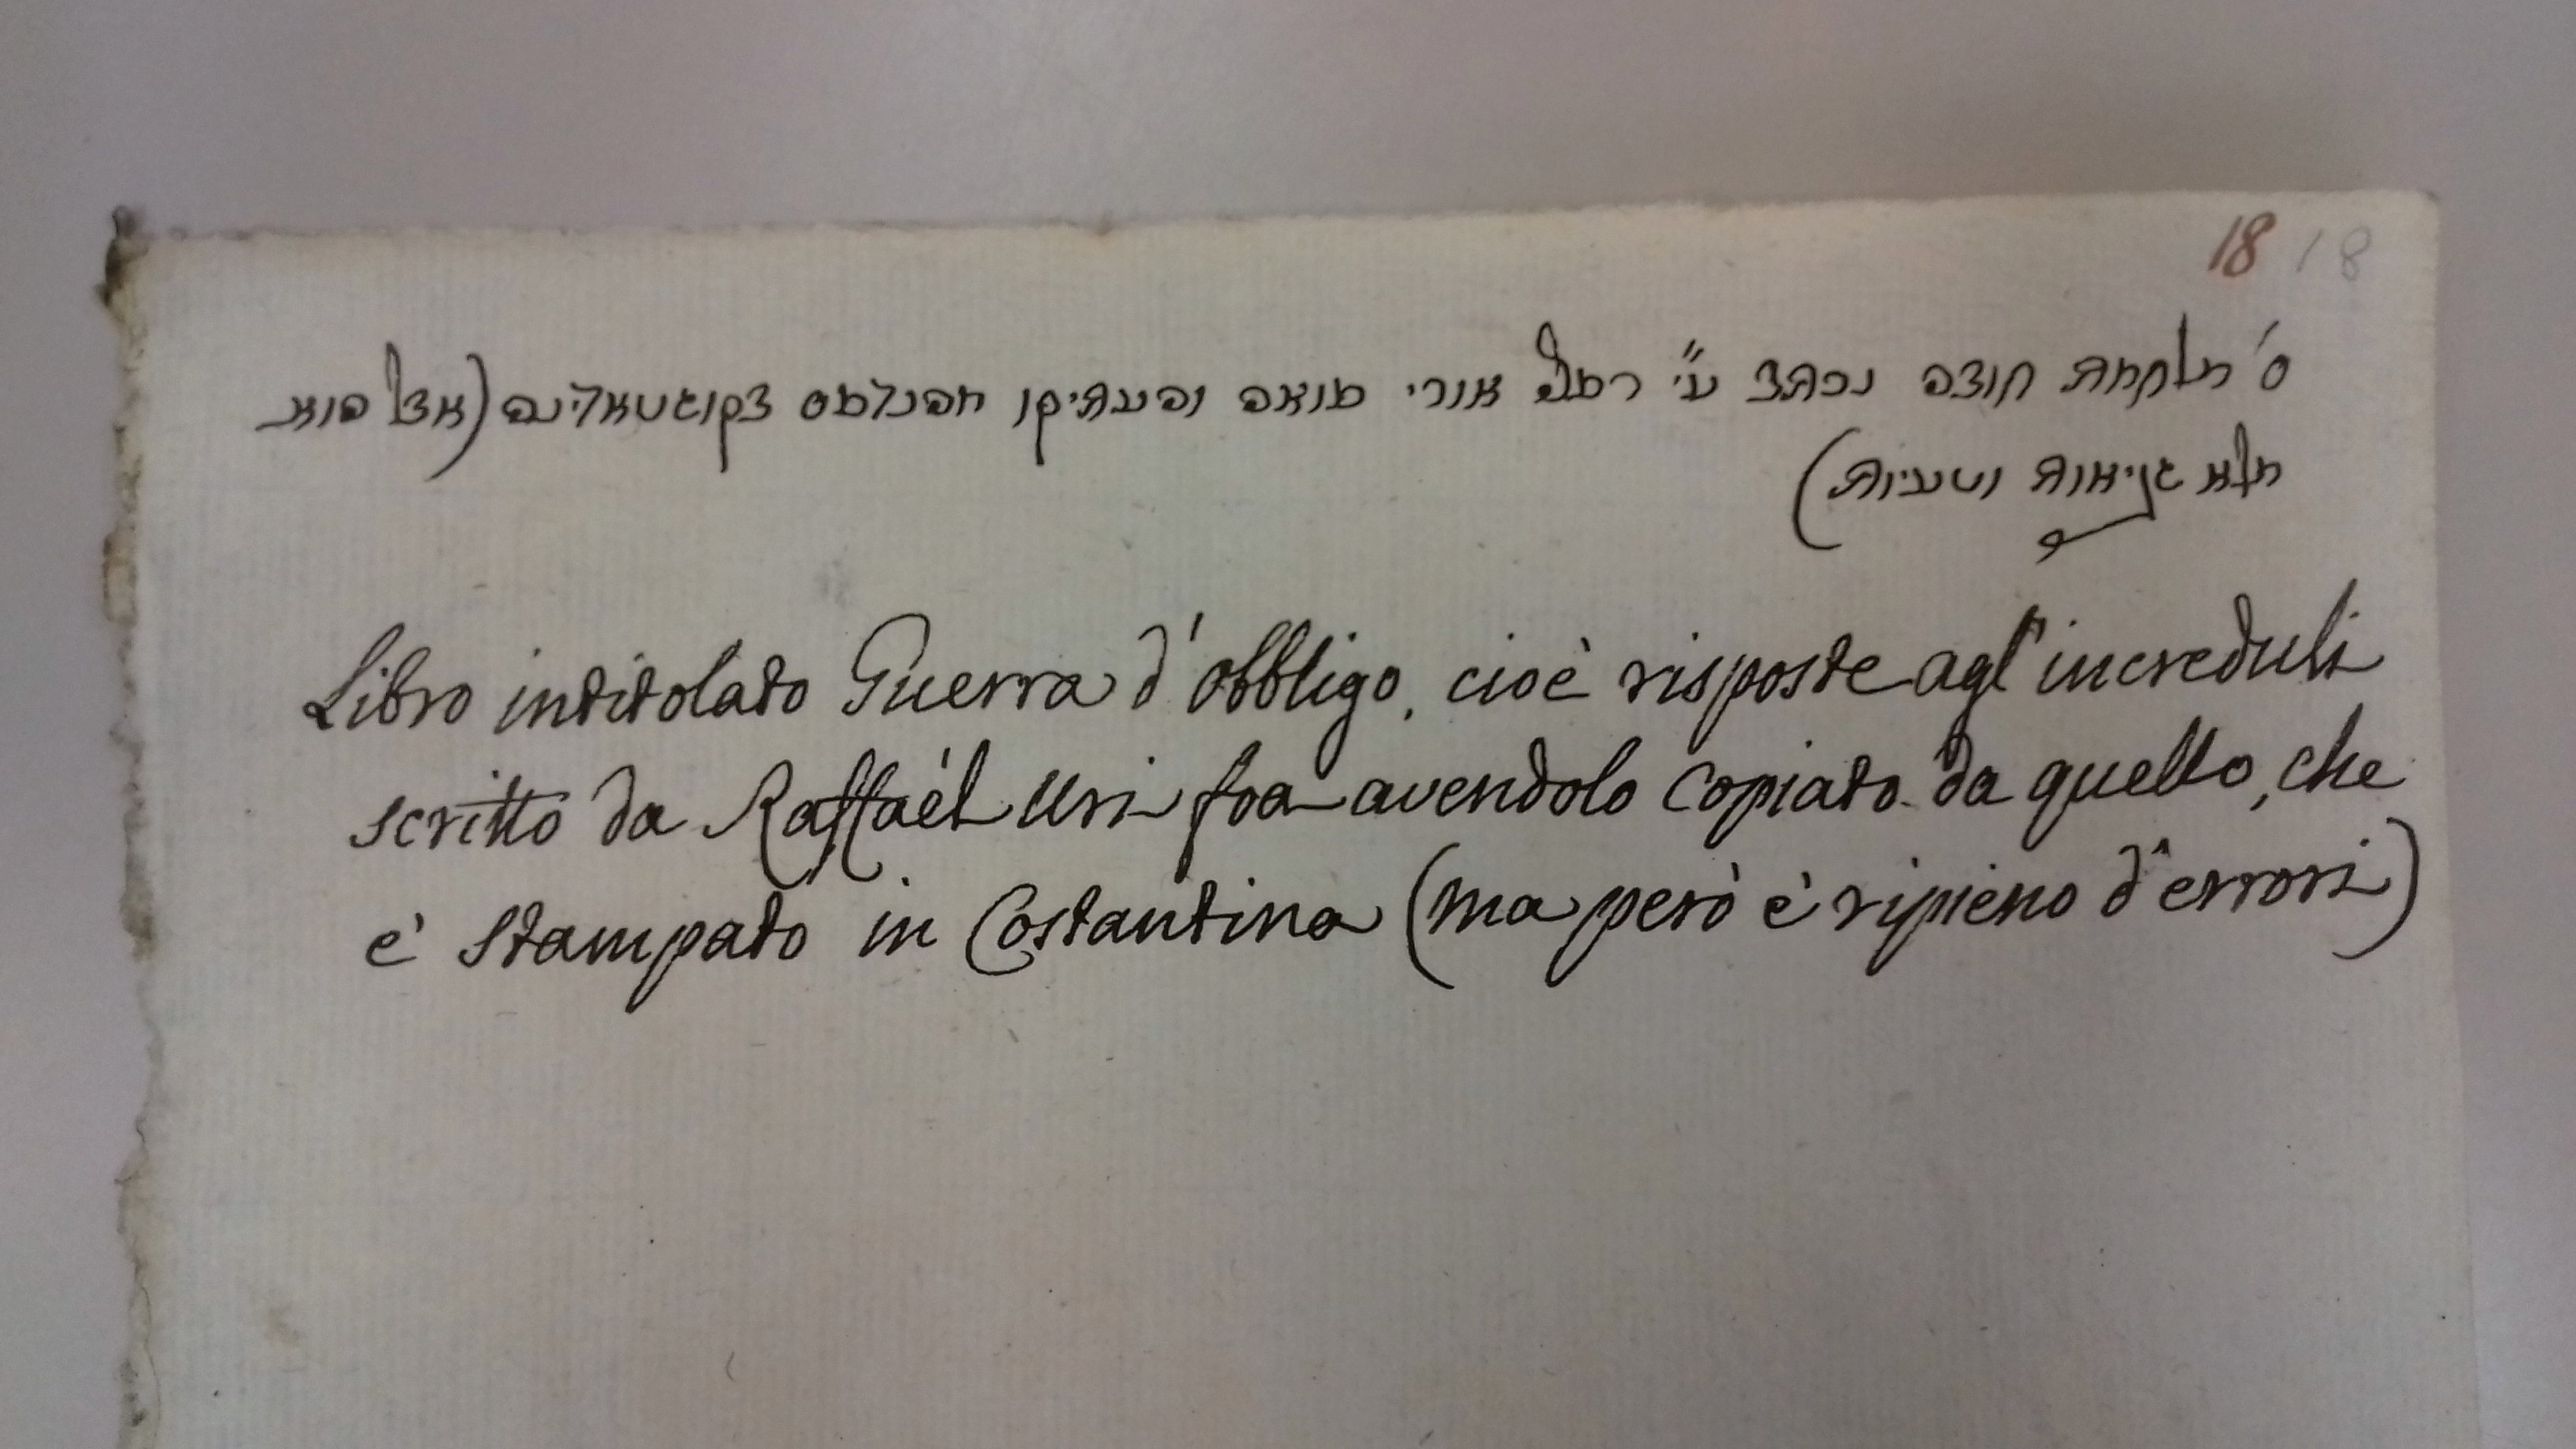 18 18
ס' מלחמת חובה נכתב ע"י רפאל אורי פואה והעתיקו מהנדפס בקוגטאדינה (אבל הוא
מלא שגיאות וטעיות)
Libro intitolato Guerra d'obbligo, cioè risposte agl'increduli
scritto da Raffaèl Uri foa avendolo copiato da quello, che
è stampato in Costantina (ma però è ripieno d'errori)